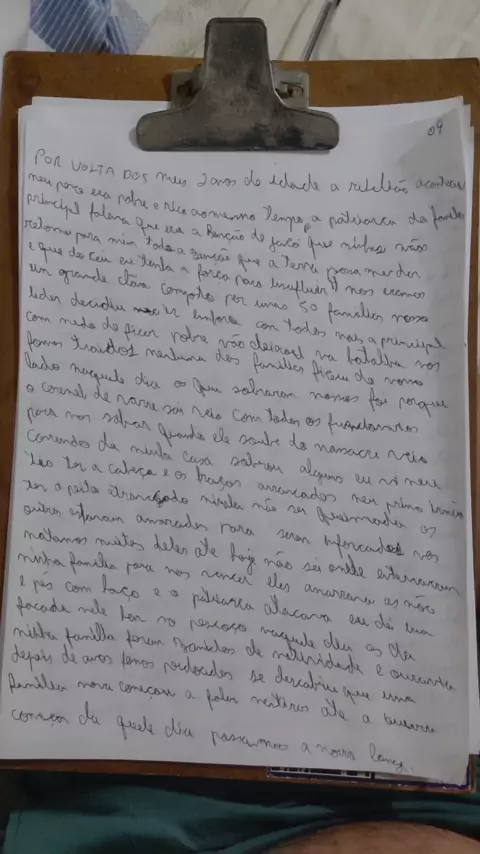 09
POR VOLTA DOS meus 2 anos de idade a rebelião aconteceu
meu povo era pobre e rico ao mesmo tempo, a patriarca da família
principal falava que era a Benção de Jacó que minhas mãos
retorne para mim toda a benção que a terra possa me der
e que do céu eu tenha a força para
um grande clã composto por umas 50 famílias nosso
lider decidiu ir embora con todos mais a principal
com medo de ficar pobre não deixou na batalha nos
fomos traidos nenhuma das famílias ficou do nosso
lado naquele dia os que sobraram nossos foi porque
o coronel de veio com todos os funcionarios
para nos salvar quando ele soube do massacre veio
correndo da minha casa sobrou alguns eu vi meu
tio ter a cabeça e os braços arrancados meu primo
ter o peito não sei os
outros estavam amarrados para serem enforcados nos
matamos muitos deles ate hoje não sei onde enterraram
minha família para nos vencer eles amarraram as mão
e pés com laço e o patriarca atacava eu dei uma
facada nele bem no pescoço naquele dia os da
minha família foram de e
depois de anos fomos se descobriu que uma
família nova começou a falar mentiras ate a guerra
começar da quele dia passamos a